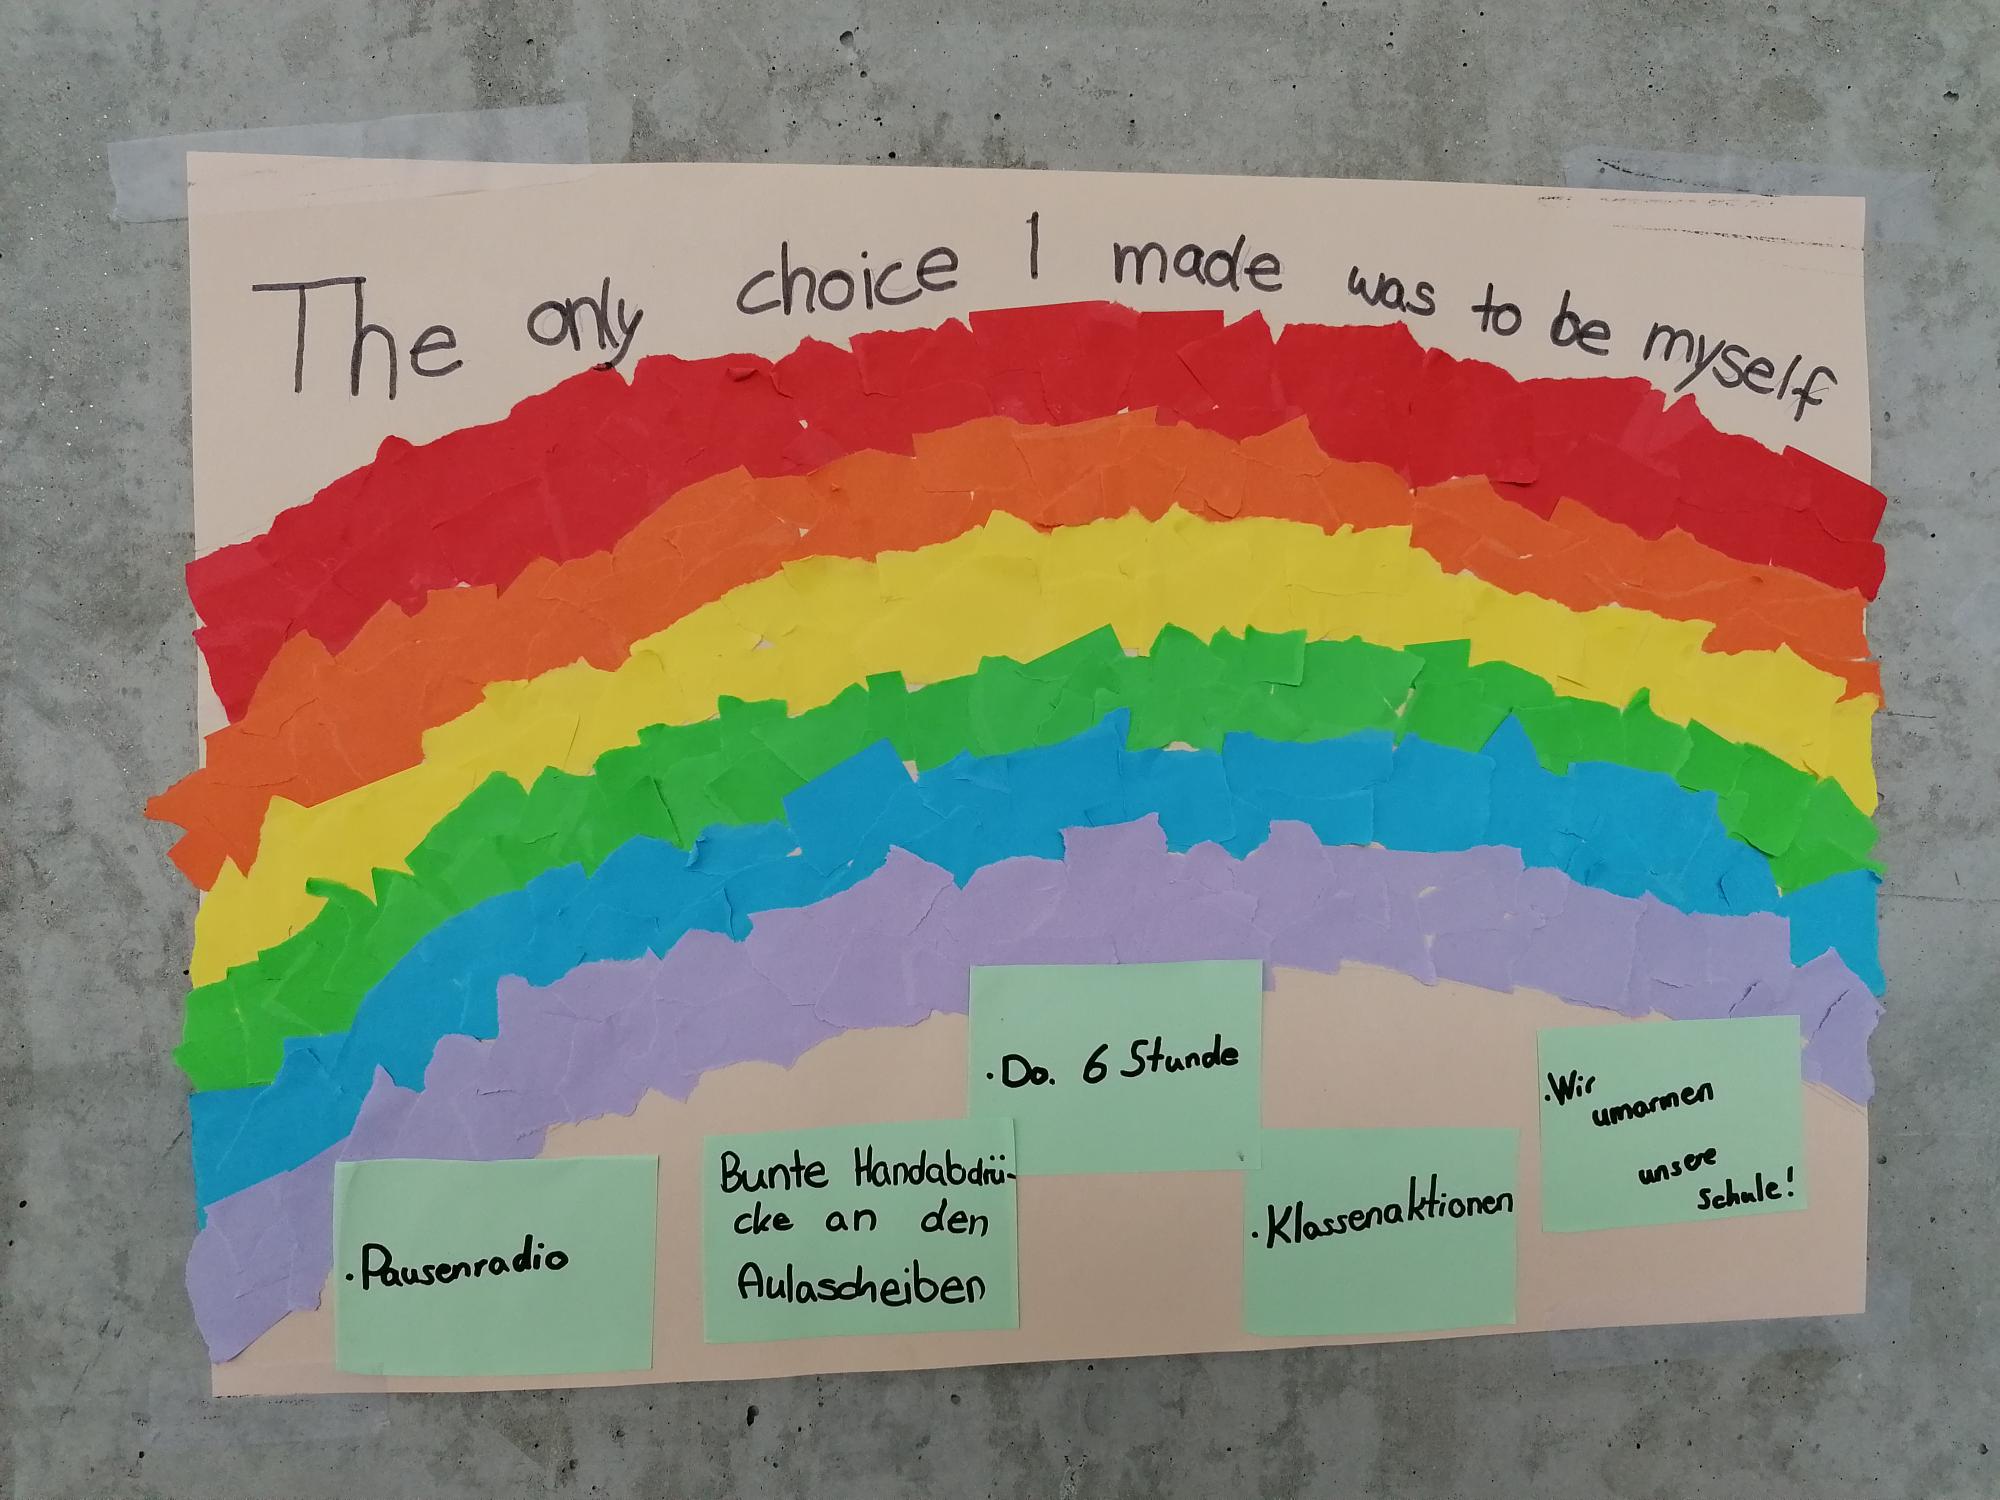 The only choice I made was to be myself
. Do. 6 Stunde
. Wir
umarmen
unsere
Schule!
Bunte Handabdrü-
cke an den
Aulascheiben
. Klassenaktionen
. Pausenradio